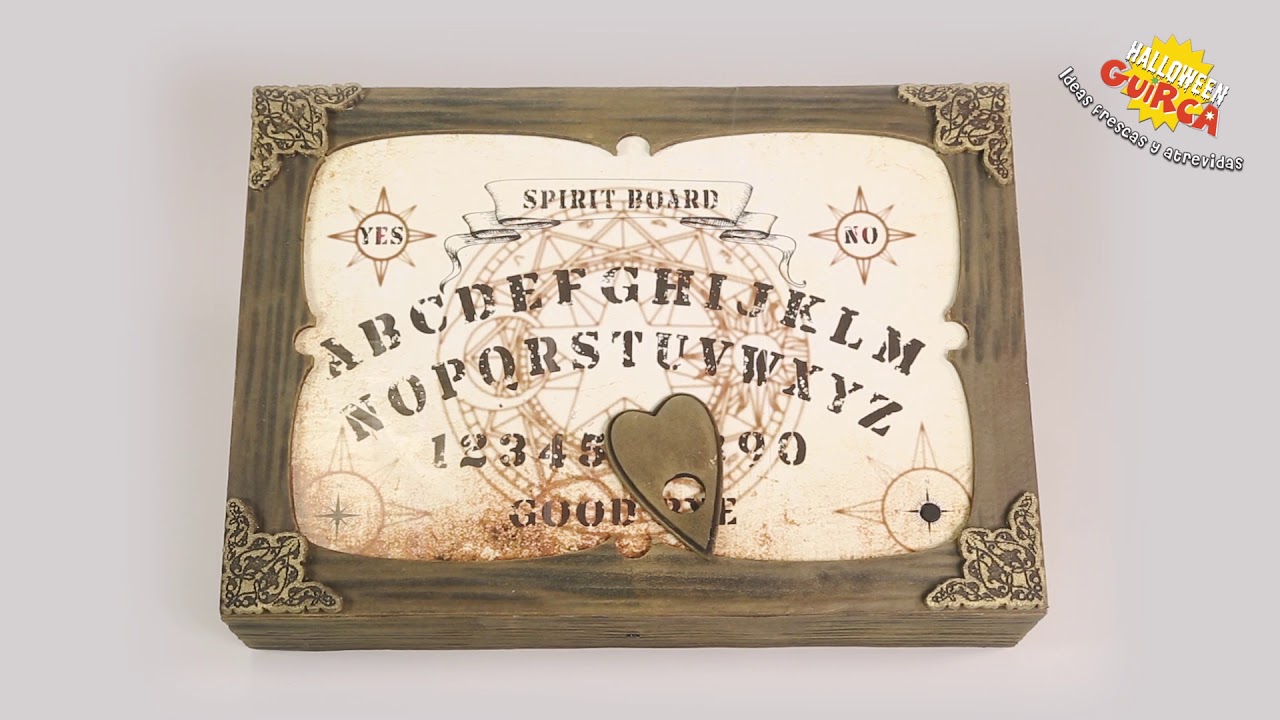 HALLOWEEN
GUiRCA
Ideas frescas y atrevidas
SPIRIT BOARD
YES
NO
ABCDEFGHIJKLM
NOPQRSTUVWXYZ
12345 890
GOOD BYE